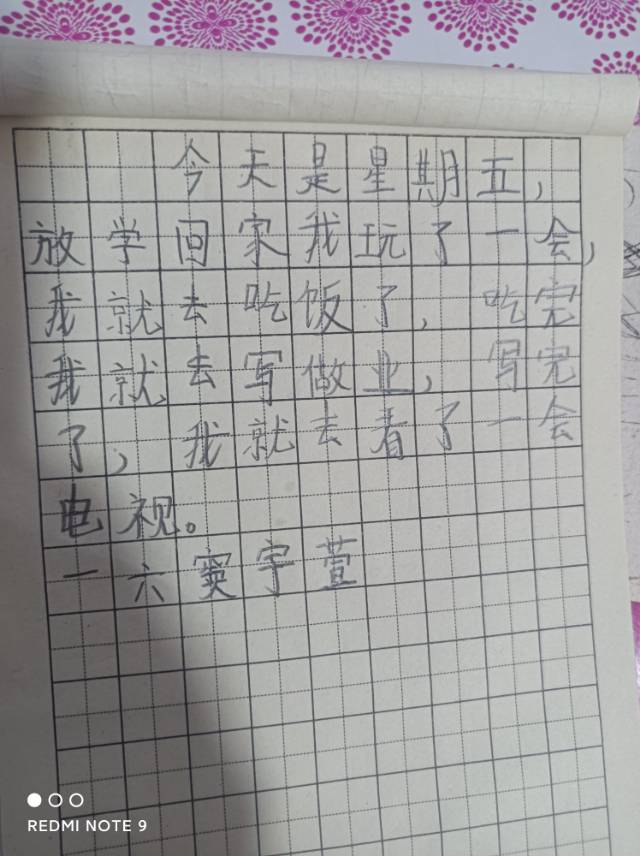 今天是星期五，
放学回家我玩了一会，
我就去吃饭了，吃完
我就去写做业，写完
了，我就去看了一会
电视。
一六窦宇萱
REDMI NOTE 9